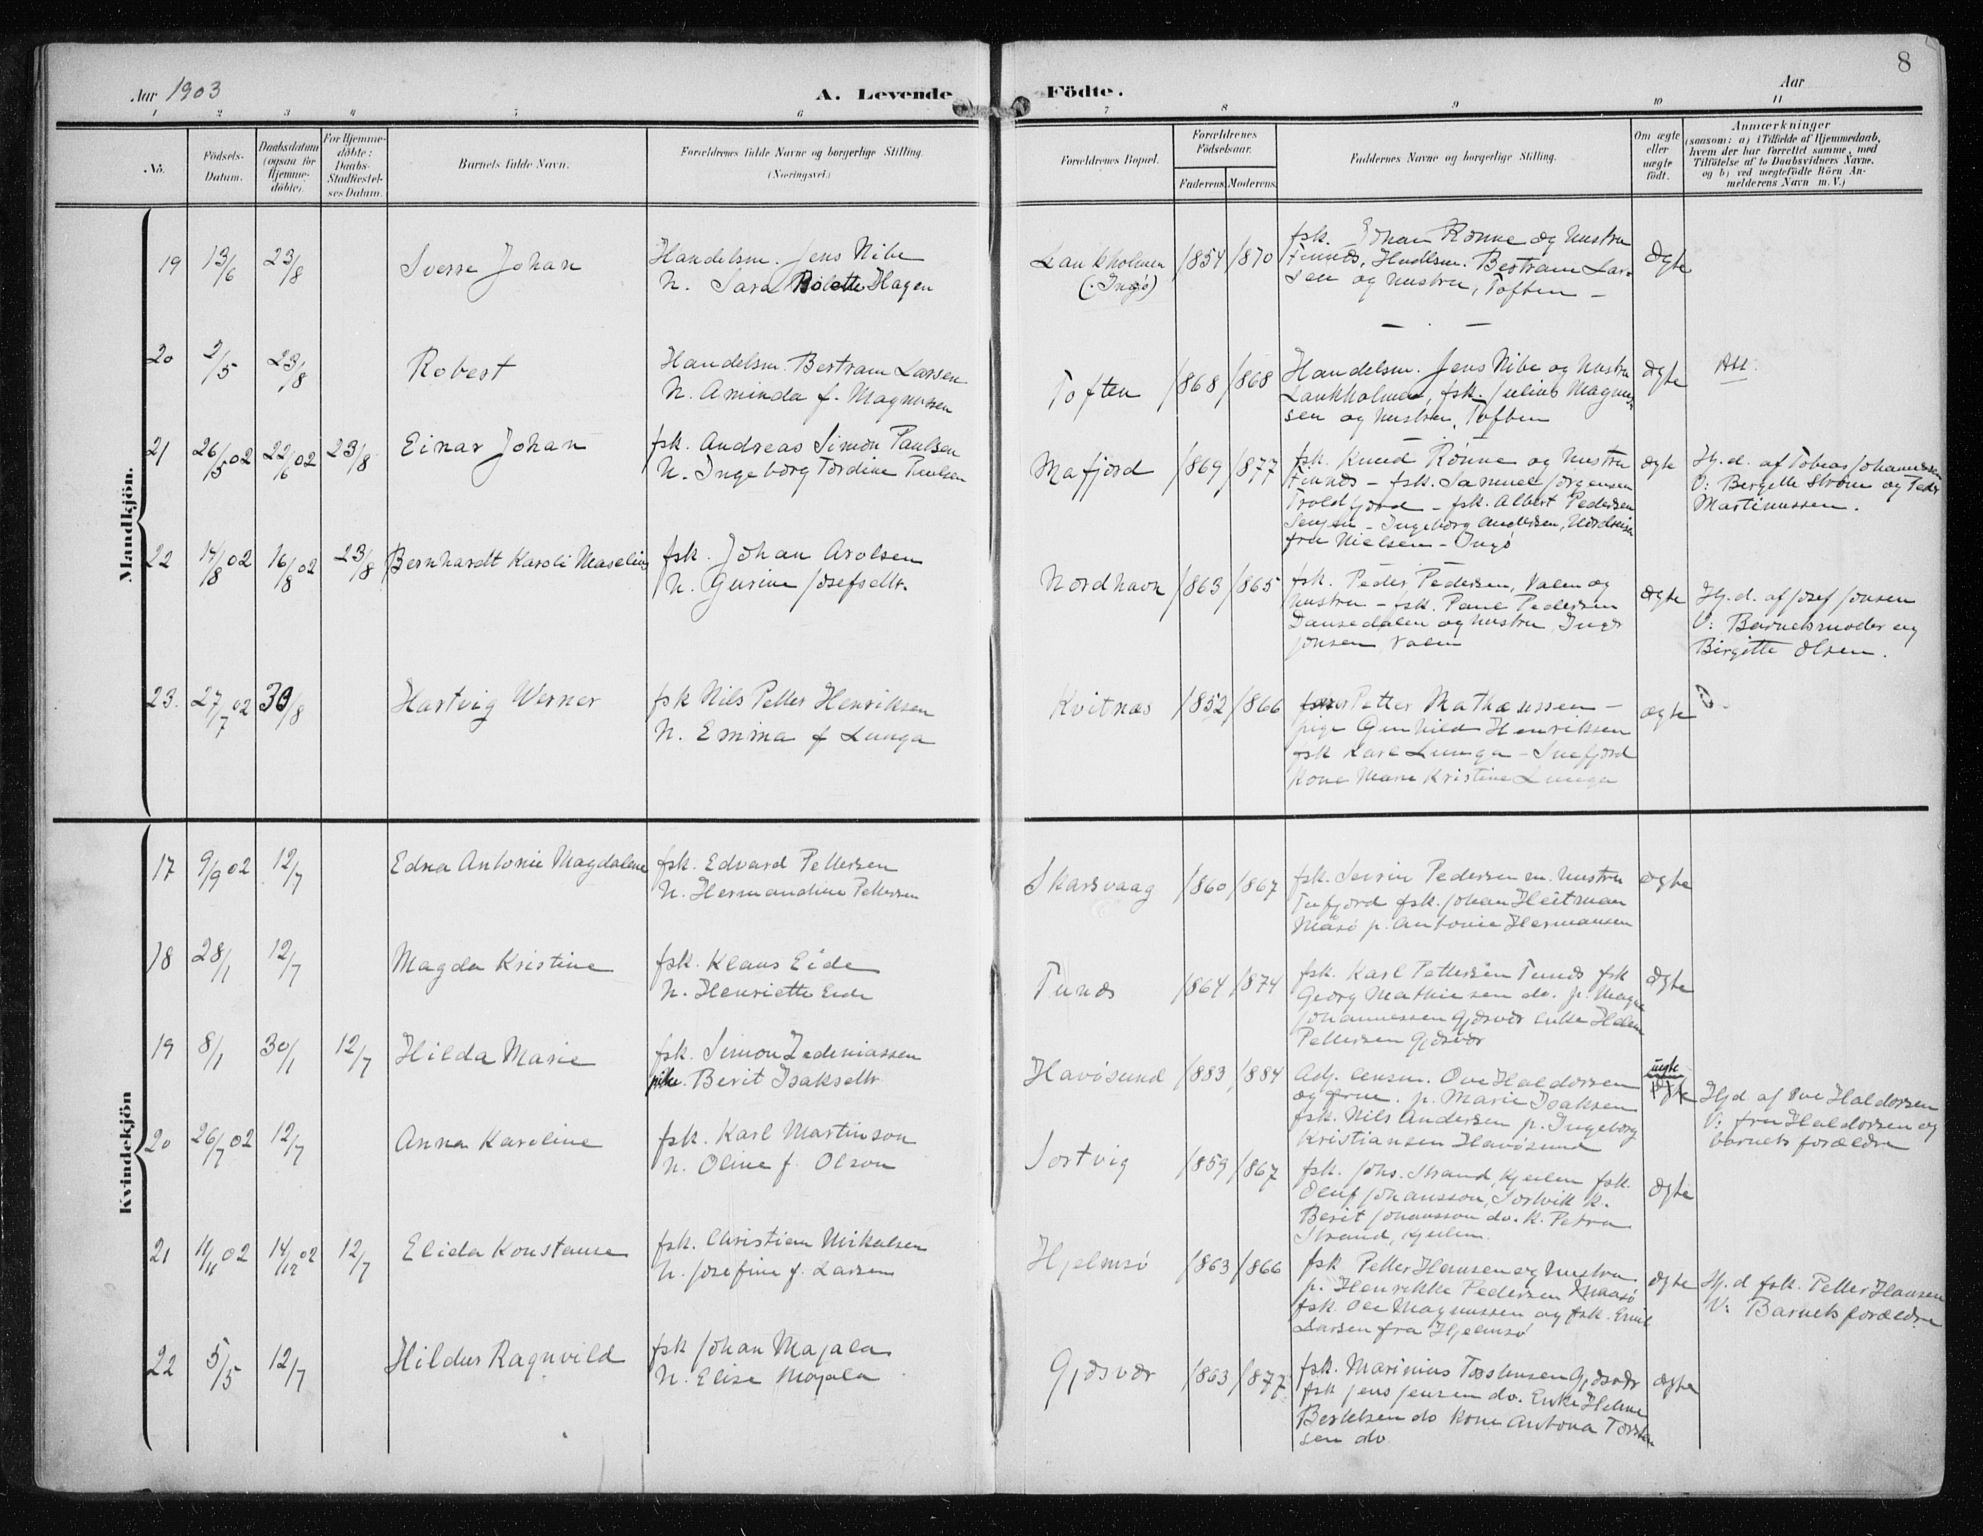 8
Aar 1903
A. Levende
Födte.
Aar
1 2 3 4 5 6 7 8 9 10 11
No.
Födsels-
Datum.
Daabsdatum
(ogsaa for
Hjemme-
döbte).
For Hjemme-
döbte:
Daabs-
Stadfæstel-
ses Datum.
Barnets fulde Navn.
Forældrenes fulde Navne og borgerlige Stilling.
(Næringsvei.)
Forældrenes Bopæl.
Forældrenes
Födselsaar.
Faderens.
Moderens.
Faddernes Navne og borgerlige Stilling.
Om ægte
eller
uægte
født.
Anmærkninger
(saasom: a) i Tilfælde af Hjemmedaab,
hvem der har forrettet samme, med
Tilföielse af to Daabsvidners Navne,
og b) ved uægtefödte Börn An-
melderens Navn m. V.)
Mandkjön.
19 13/6 23/8 Sverre Johan
Handelsm. Jens Nibe
H. Sara Hagen
Lankholmen
(Ingö)
1854 1870
fsk. Johan Rönne og hustru
Finnes, Handelsm. Bertram Lar-
sen og hustru, Toften —
Ægte
20 2/5 23/8 Robert
Handelsm. Bertram Larsen
H. Aminda f. Magnussen
Toften
1868 1868
Handelsm. Jens Nibe og hustru
Lankholmen, fsk. Julius Magnus-
sen og hustru, Toften
Ægte
Att.
21 26/5 02 22/6 02 23/8 Einar Johan
fsk. Andreas Simon Paulsen
H. Ingeborg Tordine Paulsen
Mafjord
1869 1877
fsk. Knud Rönne og hustru
Finnes — fsk. Samuel Jörgensen
Troldfjord — fsk. Albert Pedersen
— Ingeborg Andersen,
fru Nielsen — Ingö
Ægte
Hj.d. af Tobias Johannessen
V: Bergette Ström og Peder
Martinussen.
22 14/8 02 16/8 02 23/8 Bernhardt Karoli Maselius
fsk. Johan Arolsen
H. Gurine Josefsdtr.
Nordhavn
1863 1865
fsk. Peder Pedersen, Valen og
hustru — fsk. Paul Pedersen
Dansedalen og hustru, Inger
Jonsen Valen
Ægte
Hj.d. af Josef Jonsen
V: Barnets moder og
Birgitte Olsen.
23. 27/7 02 30/8 Hartvig Werner
fsk Nils Petter Henriksen
H. Emma f Lunga
Kvitnæs
1852 1866
Petter Mathæussen —
pige Gunhild Henriksen
fsk Karl Lunga — Snefjord
kone Marie Kristine Lunga
ægte
Kvindekjön
17 9/9 02 12/7 Edna Antonie Magdalene
fsk. Edvard Pettersen
H. Hermandine Pettersen
Skarsvaag
1860 1867
fsk. Sevrin Pedersen m. hustru
Tufjord fsk. Johan Heitman
Måsö p. Antonie Hermansen
ægte
18 28/1 12/7 Magda Kristine
fsk. Klaus Eide
H. Henriette Eide
Tunæs
1864 1874
fsk. Karl Pettersen Tunæs fsk
Georg Mathiesen do. p. Magna
Johannessen Gjæsvær enke Helene
Pettersen Gjæsvær
Ægte
19 8/1 30/1 12/7 Hilda Marie
fsk. Simon Zedeniassen
pike. Berit Isaksdtr
Havösund
1883 1884
Adj. lensm. Ove Haldorsen
og frue. p. Marie Isaksen
fsk. Nils Andersen p. Ingeborg
Kristiansen Havösund
uægte
Ægte
Hjd af Ove Haldorsen
V: fru Haldorsen og
barnets forældre
20 26/7 02 12/7 Anna Karoline
fsk. Karl Martinson
H. Oline f. Olson
Sortvig
1859 1867
fsk. Johs. Strand, Kjeilen fsk.
Oluf Johansson, Sortvik k.
Berit Johansson do. k. Petra
Strand, Kjeilen.
Ægte
21 11/11 02 14/12 02 12/7 Elida Konstanse
fsk. Christian Mikalsen
H. Josefine f. Larsen
Hjelmsö
1863 1866
fsk Petter Hansen og hustru
p. Henrikke Pedersen Maasö
fsk. Ole Magnussen og fsk. Emil
Larsen fra Hjelmsö
Ægte
Hj.d fsk. Petter Hansen
V: Barnets forældre
22 5/5 12/7 Hildur Ragnvild
fsk Johan Majala
H. Elise Majala
Gjæsvær
1863 1877
fsk. Marinius Torstensen Gjæsvær
fsk Jens Jensen do. Enke Helene
Bertelsen do kone Antona Torsten
sen do
ægte